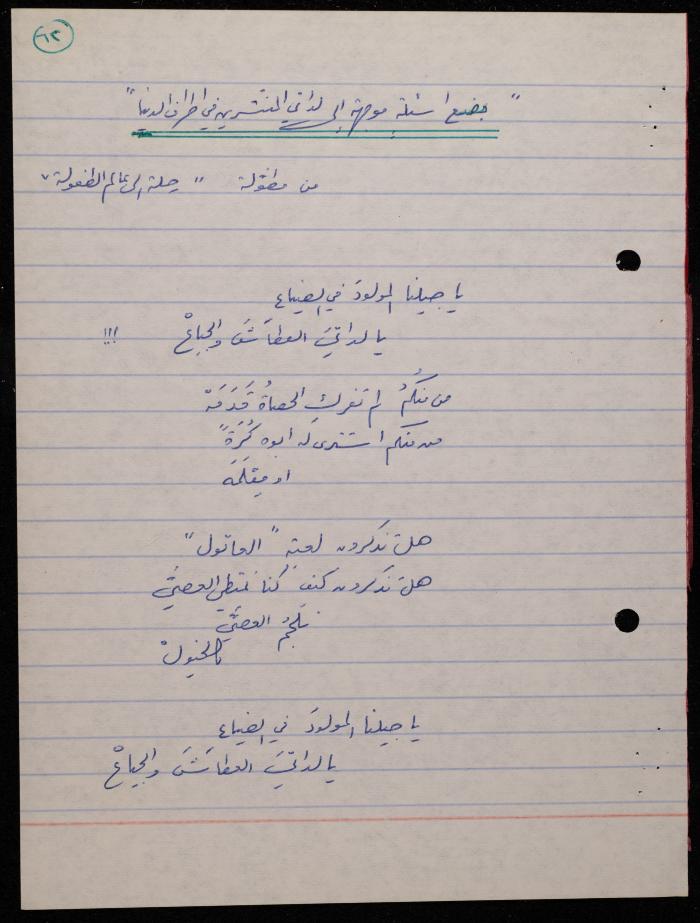 ٦٣
"بضع اسئلة موجهة إلى لداتي المنتشرين في اطراف الدنيا"
من مطوّلة "رحلة إلى عالم الطفولة"
يا جيلنا المولودَ في الضياع
يا لداتيَ العطاشَ والجياعْ !!!
من منكمُ لم تفركِ الحصاةُ قَدَمَهْ
من منكم اشترى له أبوه كُرَةً
او مِقلمَه
هل تذكرون لعبة "العاتول"
هل تذكرون كيف كنا نمتطي العصيَّ
نُلجمُ العصيَّ
كالخيولْ
يا جيلنا المولودَ في الضياع
يا لداتيَ العطاشَ والجياعْ